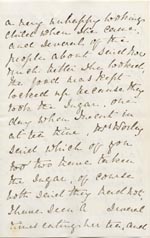 a very unhappy looking
child when she came
and several of the
people about said how
much better she looked.
the food was kept
locked up because they
took the sugar, one
day when I went in
at tea time, Mrs
said which of you
two have taken
the sugar, of course
both said they had not,
I have seen a several
times eating her tea, and